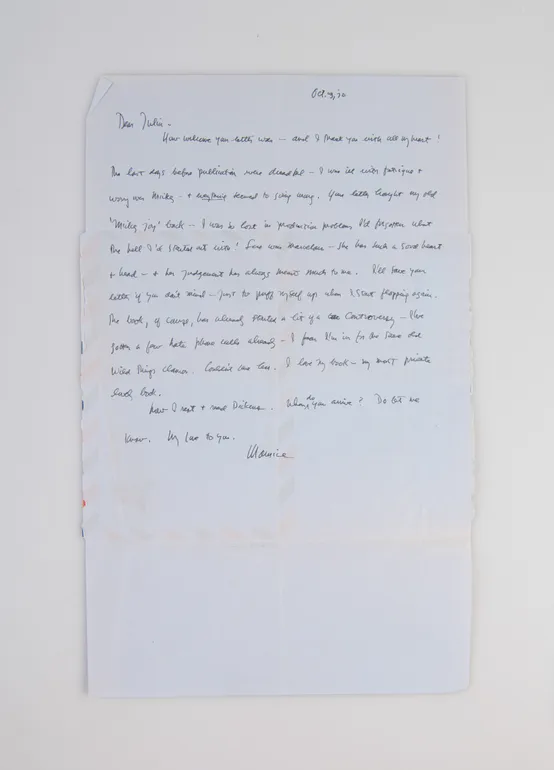 Oct. 9, 70
Dear Julia -
How welcome your letter was — and I thank you with all my heart!
The last days before publication were dreadful — I was ill with fatigue +
worry over Mickey — + everything seemed to going away. Your letter brought my old
'Mickey joy' back — I was so lost in production problems I'd forgotten what
the hell I'd started out with! was marvelous — she has such a good heart
+ head — + her judgement has always meant much to me. I'll save your
letter if you don't mind — just to puff myself up when I start flopping again.
The book, of course, has already started a bit of a controversy — I've
gotten a few hate phone calls already — I fear I'm in for the same old
Wild Things clamor. Couldn't care less. I love my book — my most private
lovely book.
Now I rest + read Dickens. When do you arrive? Do let me
know. My love to you.
Maurice